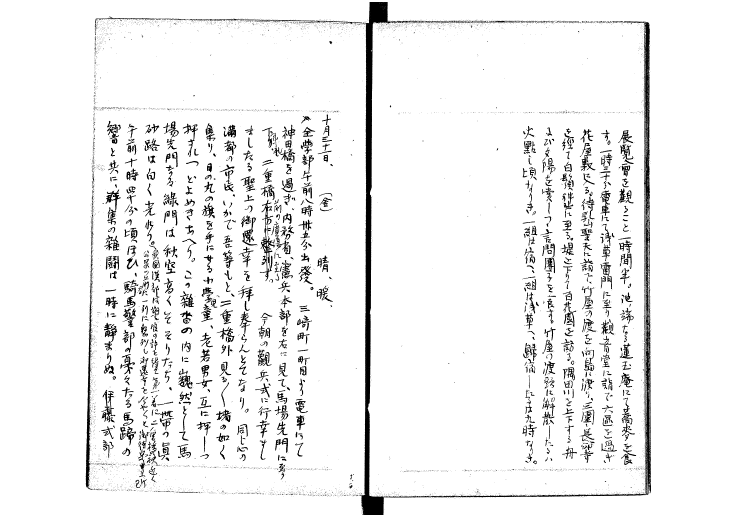 展覧會を観ること一時間半。池端なる蓮玉庵にて蕎麦を食
す。一時三十分電車にて浅草雷門に至り観音堂に詣で六區を過ぎ
花屋敷に入る。待乳山聖天に詣で竹屋の渡を向島に渡り三圍、長命寺
を経て白鬚神社に至る。堤を下りて百花園を訪る。隅田川を上下する舟
夕陽を賞しつゝ言問團子を食す。竹屋の渡跡に解散したるハ
火點し頃なりき。一組は宿へ、一組は浅草へ、歸宿したるは九時なりき。
十月三十一日、(金) 晴、暖、
全学部午前八時卅五分出發。三崎町一町目より電車にて
神田橋を過ぎ、内務省、憲兵本部を右に見て、馬場先門に至り
下車、二重橋右方に整列す。今朝の観兵式に行幸まし
ましたる聖上の御還幸を拝し奉らんとてなり。同じ心の
満都の市民、いかで吾等もと、二重橋外見る〱堵の如く
集り、日の丸の旗を手にせる小學児童、老若男女、互に押しつ
押されつどよめきあへり。この雑沓の内に巍然として馬
場先門なる緑門は秋空高くそゝりたち、一帯の真
砂路は白く光れり。
午前十時四十分の頃ほひ、騎馬警部の戞々たる馬蹄の
響と共に、群集の雑閙は一時に静まりぬ。伊藤式部